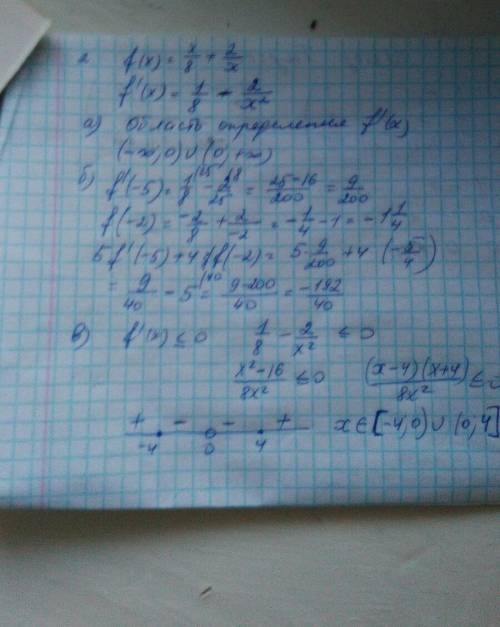 2. f(x) = x/8 + 2/x
f'(x) = 1/8 - 2/x²
а) Область определения f'(x)
(-∞, 0) ∪ (0, +∞)
б) f'(-5) = 1/8 (25 - 2/25 (8 = 25-16/200 = 9/200
f(-2) = -2/8 + 2/-2 = -1/4 - 1 = -1 1/4
5 f'(-5) + 4 f(-2) = 5 · 9/200 + 4 (-5/4)
= 9/40 - 5 (40 = 9-200/40 = -192/40
в) f'(x) ≤ 0 1/8 - 2/x² ≤ 0
x²-16/8x² ≤ 0 (x-4)(x+4)/8x² ≤ 0
+ - - +
-4 0 4 x ∈ [-4, 0) ∪ (0, 4]